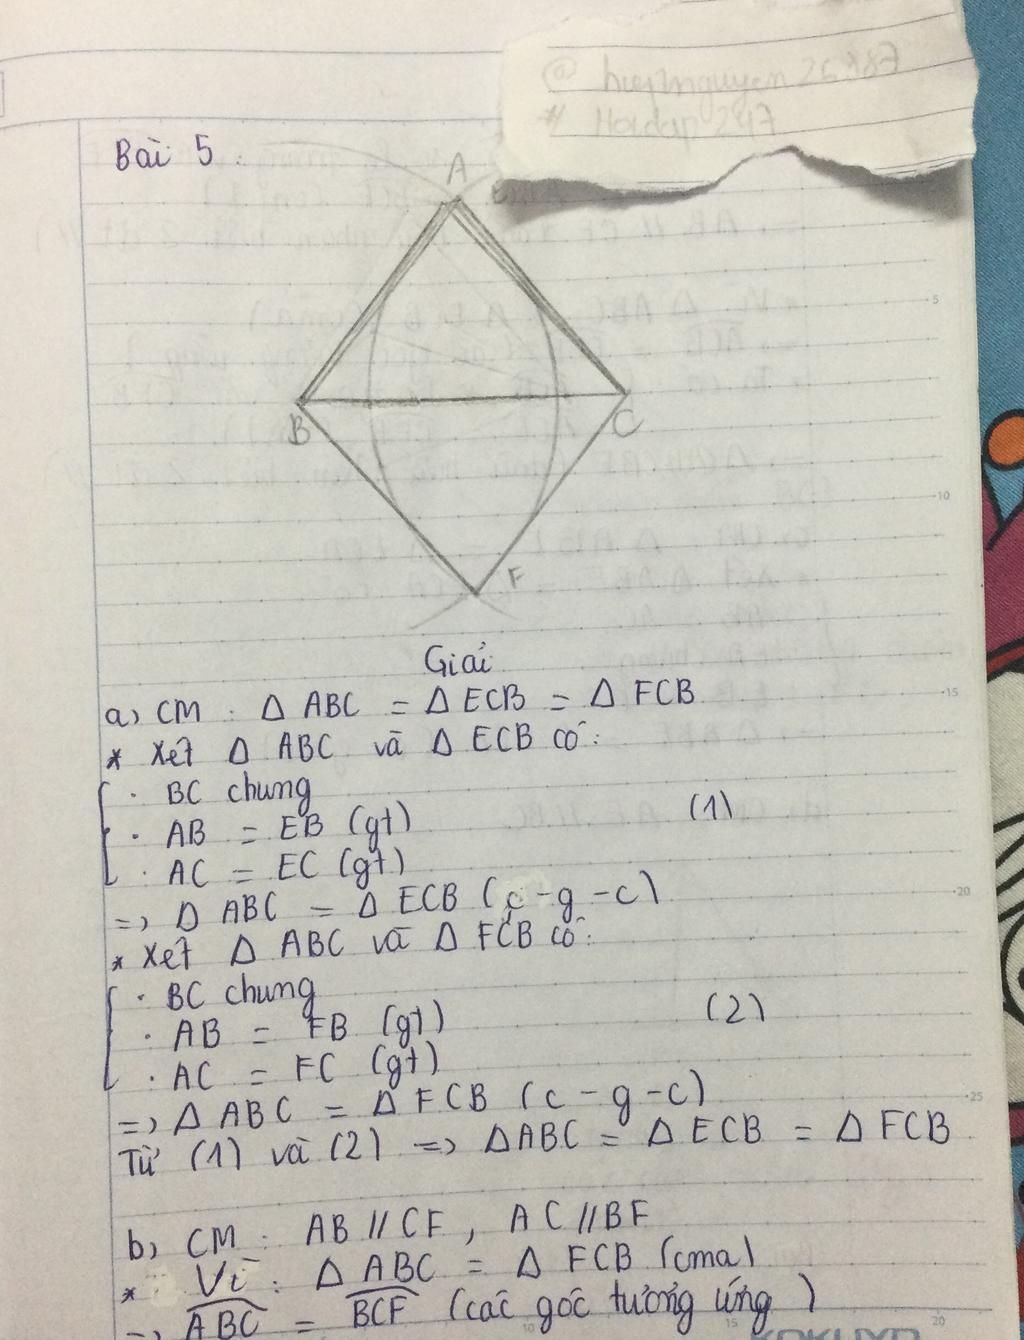 @ huynguyen26187
# Hoidap247
Bài 5:
A
E
B
C
F
Giải
a, CM: Δ ABC = Δ ECB = Δ FCB
* Xét Δ ABC và Δ ECB có:
· BC chung
· AB = EB (gt) (1)
· AC = EC (gt)
=> Δ ABC = Δ ECB (c-g-c)
* Xét Δ ABC và Δ FCB có:
· BC chung
· AB = FB (gt) (2)
· AC = FC (gt)
=> Δ ABC = Δ FCB (c-g-c)
Từ (1) và (2) => ΔABC = Δ ECB = Δ FCB
b, CM: AB // CF, AC // BF
* Vì: Δ ABC = Δ FCB (cma)
=> ABC = BCF (các góc tương ứng)
5
10
15
20
25
10 15 20
KOKUYO